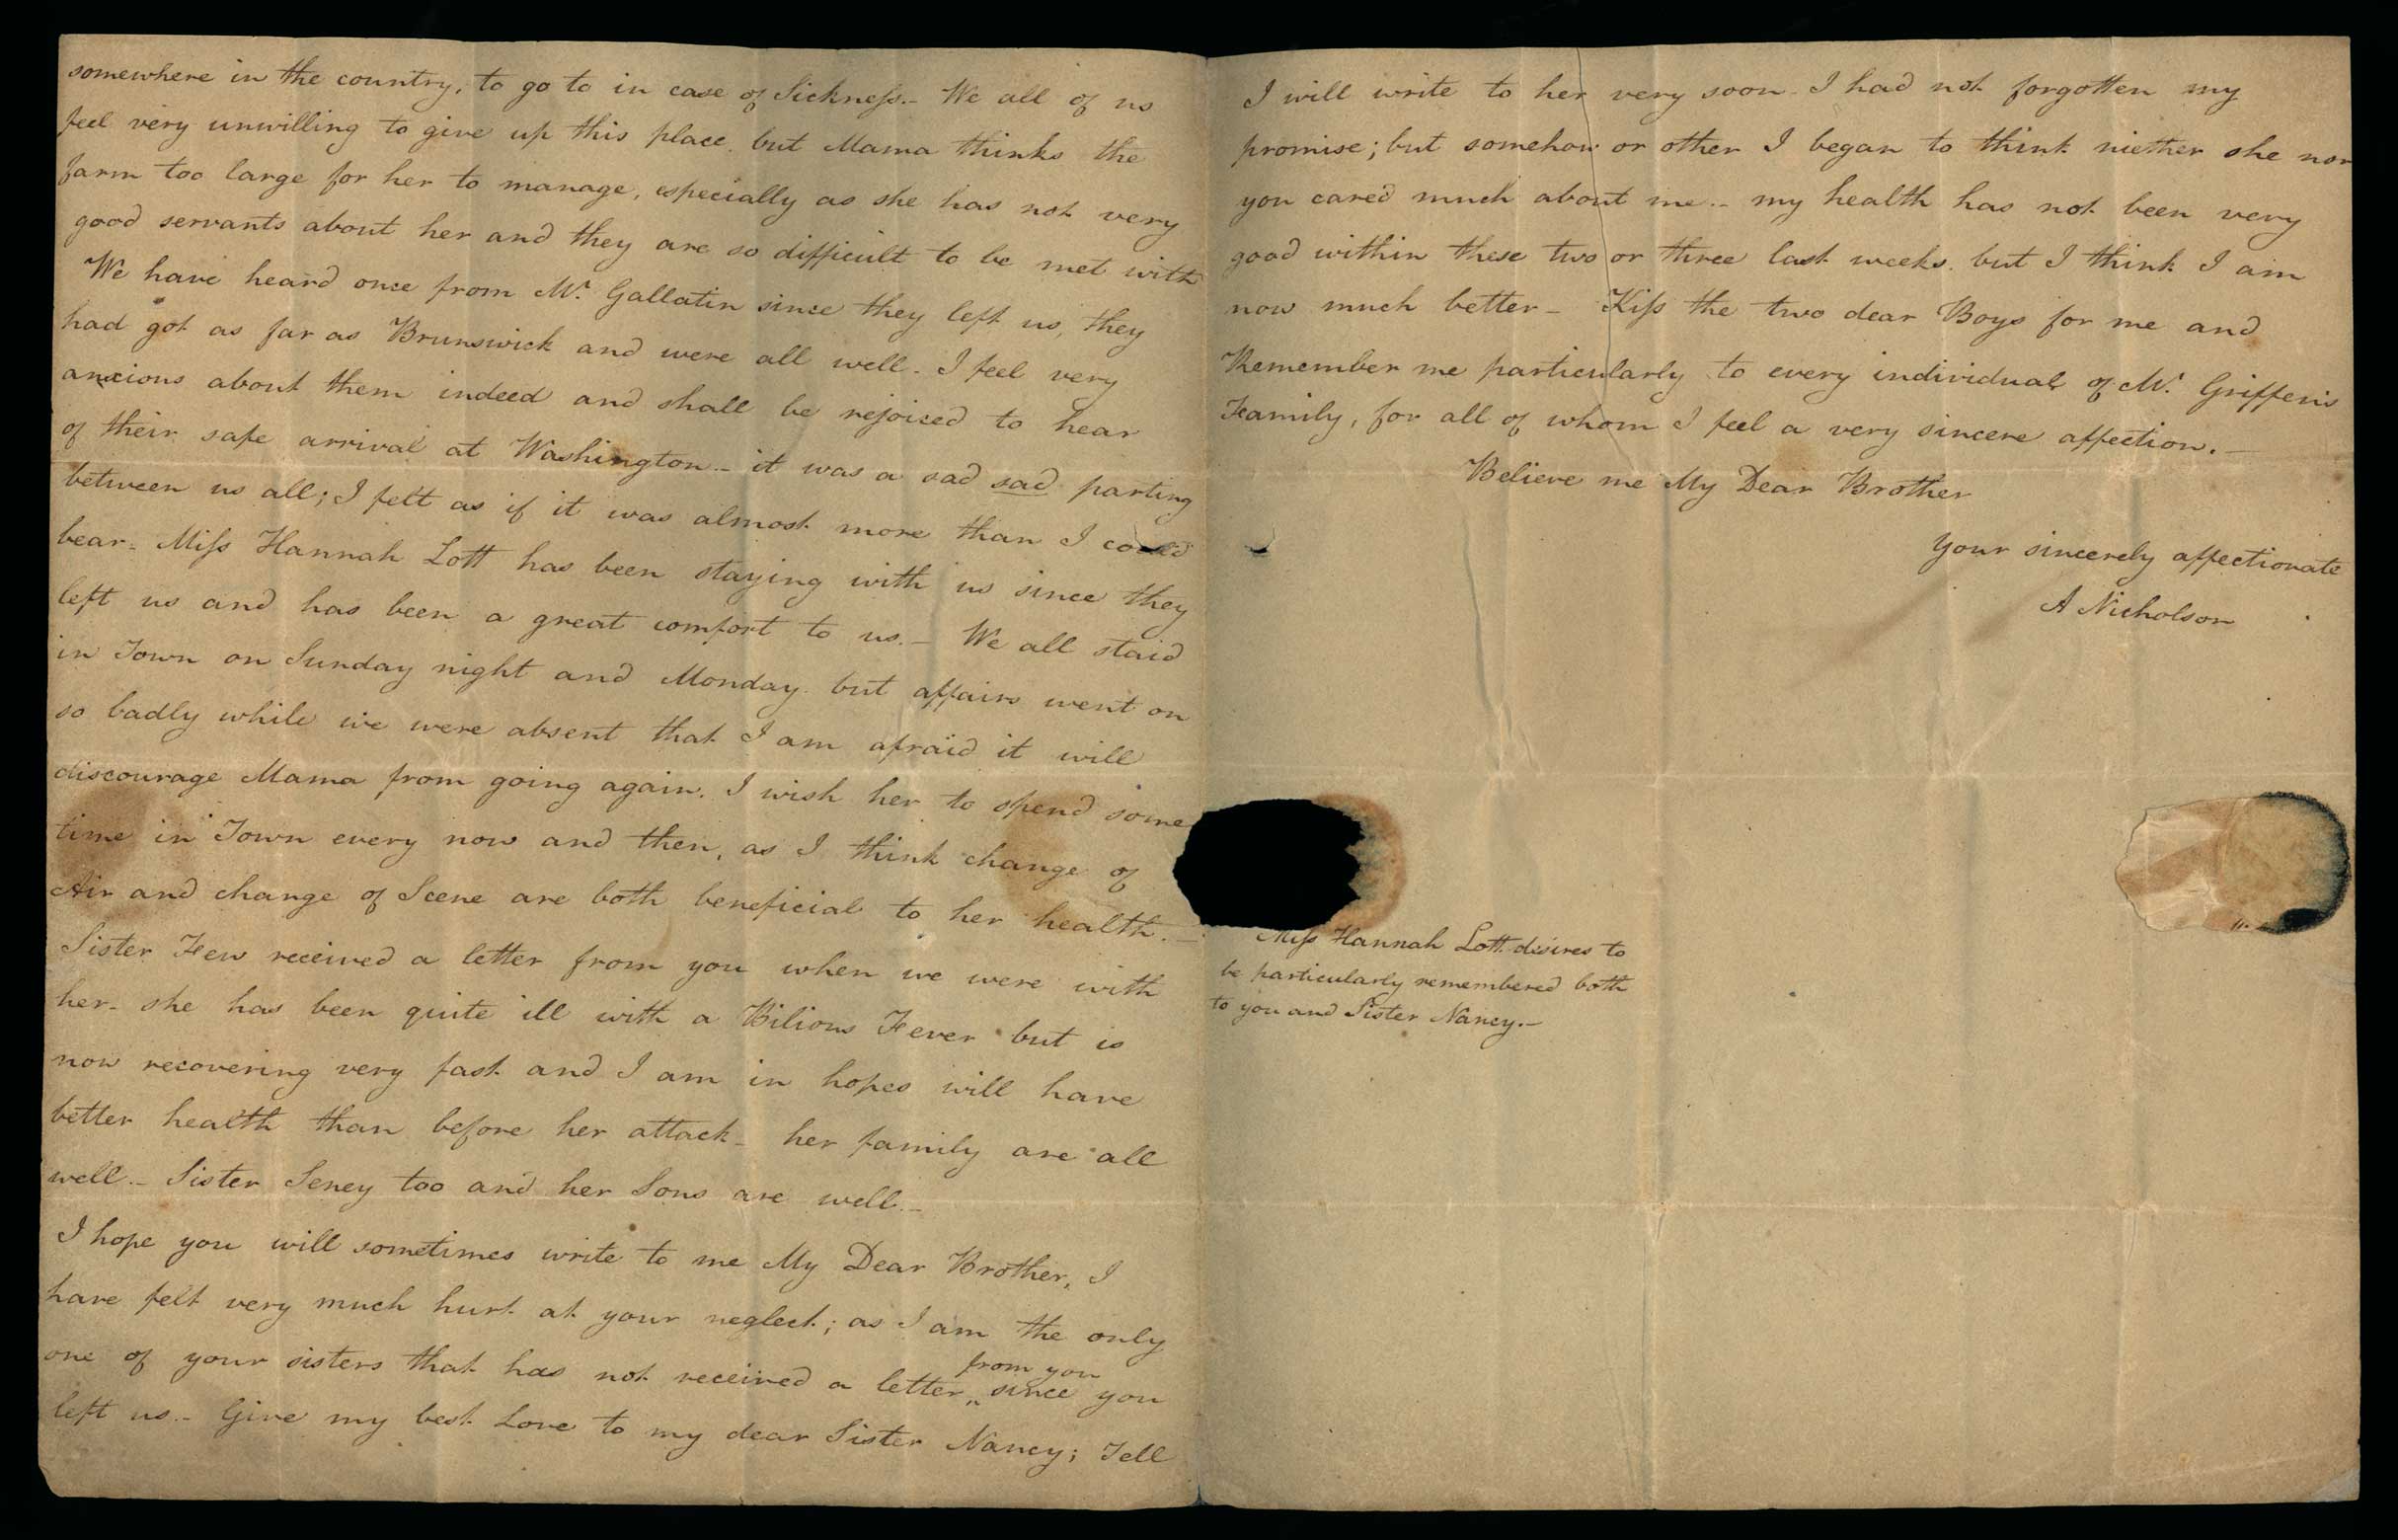 somewhere in the country, to go to in case of Sickness.- We all of us
feel very unwilling to give up this place. but Mama thinks the
farm too large for her to manage, especially as she has not very
good servants about her and they are so difficult to be met with
We have heard once from Mr. Gallatin since they left us, they
had got as far as Brunswick and were all well. I feel very
anxious about them indeed and shall be rejoiced to hear
of their safe arrival at Washington.- it was a sad sad parting
between us all; I felt as if it was almost more than I could
bear. Miss Hannah Lott has been staying with us since they
left us and has been a great comfort to us.- We all staid
in Town on Sunday night and Monday. but affairs went on
so badly while we were absent that I am afraid it will
discourage Mama from going again. I wish her to spend some
time in Town every now and then, as I think change of
Air and change of Scene are both beneficial to her health.-
Sister Few received a letter from you when we were with
her- she has been quite ill with a Bilious Fever but is
now recovering very fast and I am in hopes will have
better health than before her attack- her family are all
well.- Sister Seney too and her Sons are well.-
I hope you will sometimes write to me My Dear Brother, I
have felt very much hurt at your neglect; as I am the only
one of your sisters that has not received a letter from you since you
left us.- Give my best Love to my dear Sister Nancy; Tell
I will write to her very soon- I had not forgotten my
promise; but somehow or other I began to think niether she nor
you cared much about me.- my health has not been very
good within these two or three last weeks. but I think I am
now much better- Kiss the two dear Boys for me and
Remember me particularly to every individual of Mr. Griffen's
Family, for all of whom I feel a very sincere affection.-
Believe me My Dear Brother
Your sincerely affectionate
A Nicholson
Miss Hannah Lott desires to
be particularly remembered both
to you and Sister Nancy.-